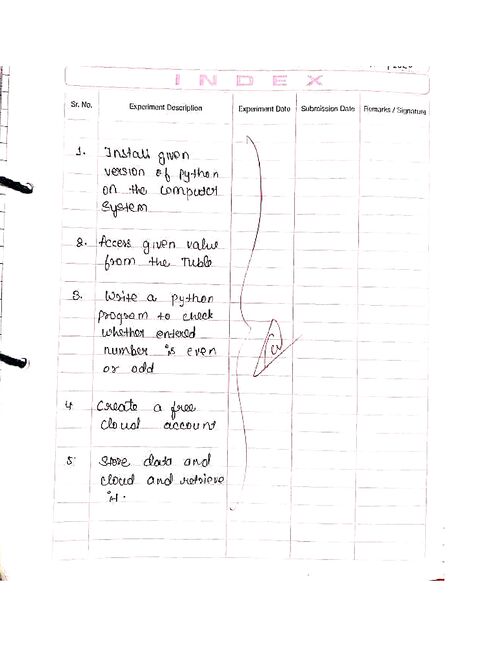 INDEX
Sr. No. Experiment Description Experiment Date Submission Date Remarks / Signature
1. Install given
version of python
on the computer
system
2. Access given value
from the Tuble
3. Write a python
program to check
whether entered
number is even
or odd
4 Create a free
cloud account
5 Store data and
cloud and retrieve
it.